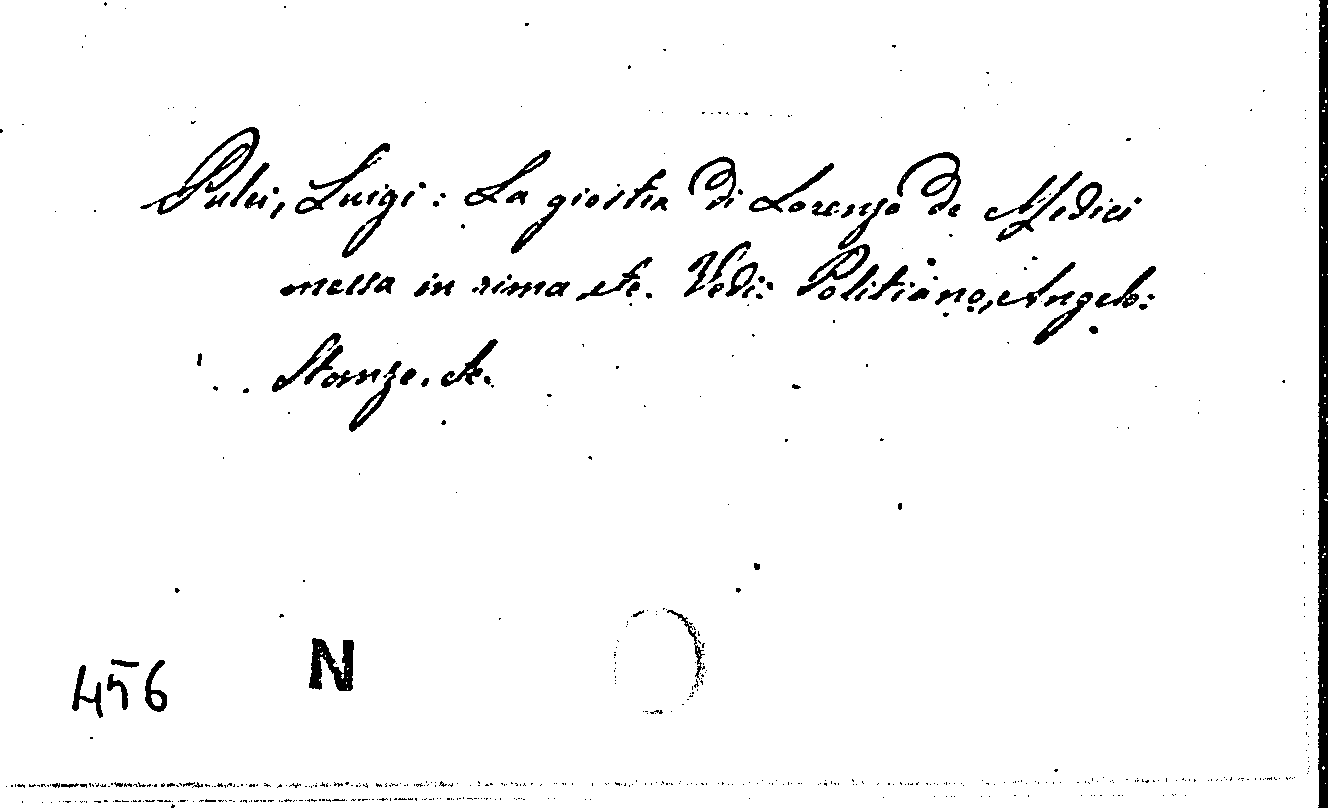 Pulci, Luigi: La giostra di Lorenzo de Medici
messa in rima etc. Vedi: Politiano, Angelo:
Stanze. etc.
456 N